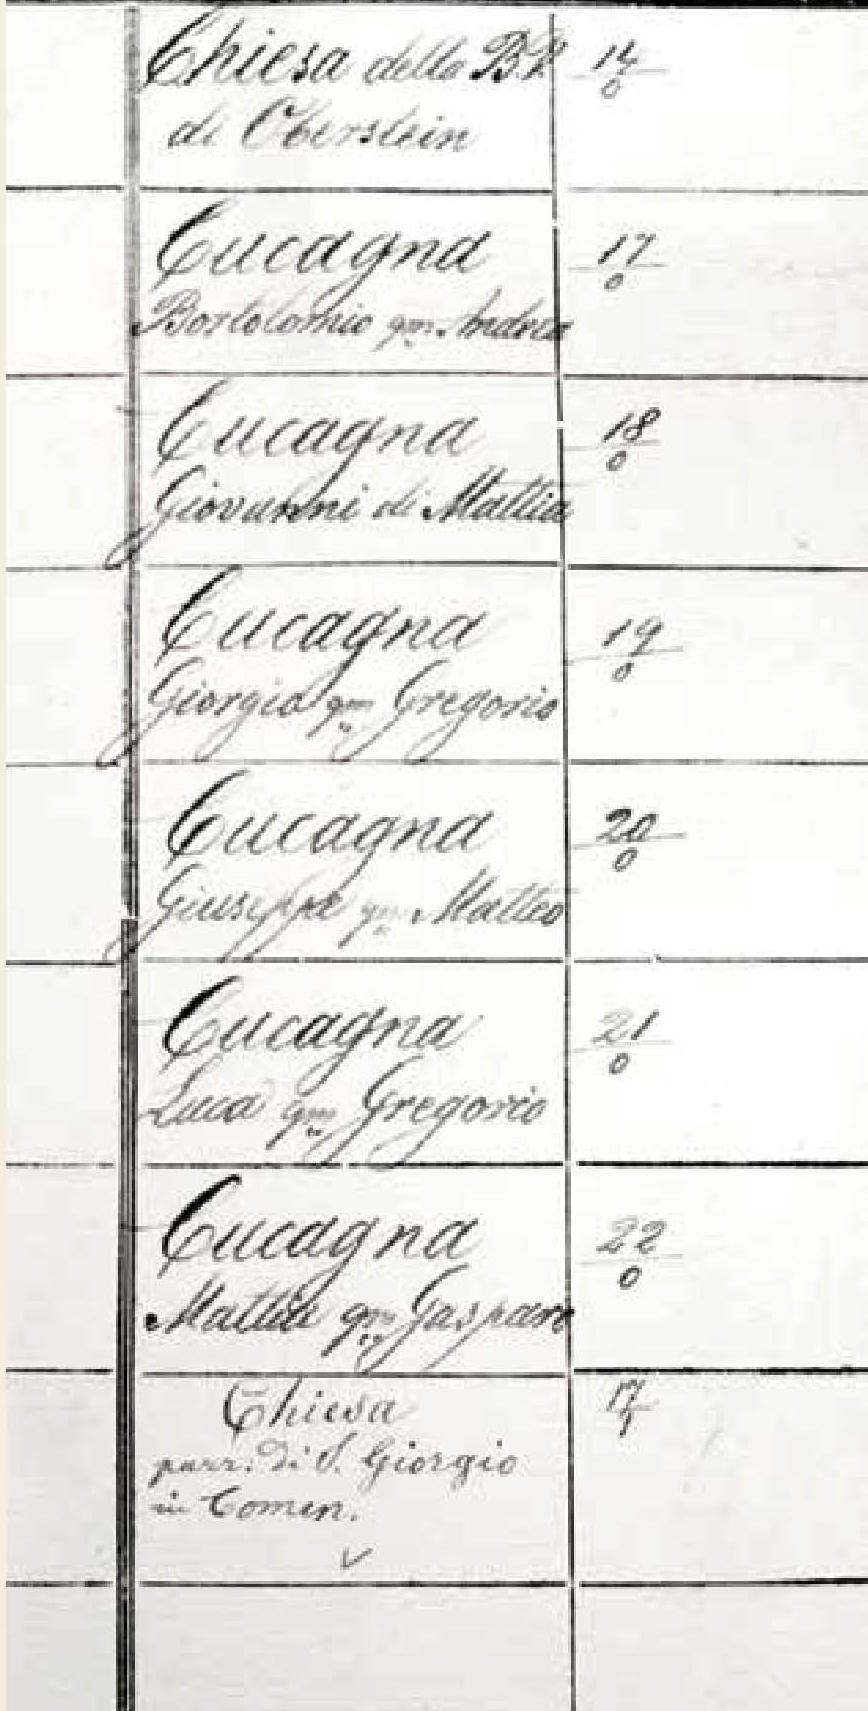 Chiesa della B.V. 14/0
di Oberstein
Cucagna 17/0
Bortolomio qm Andrea
Cucagna 18/0
Giovanni di Mattia
Cucagna 19/0
Giorgio qm Gregorio
Cucagna 20/0
Giuseppe qm Matteo
Cucagna 21/0
Luca qm Gregorio
Cucagna 22/0
Mattia qm Gasparo
Chiesa 17/1
parr. di S. Giorgio
in Comen.